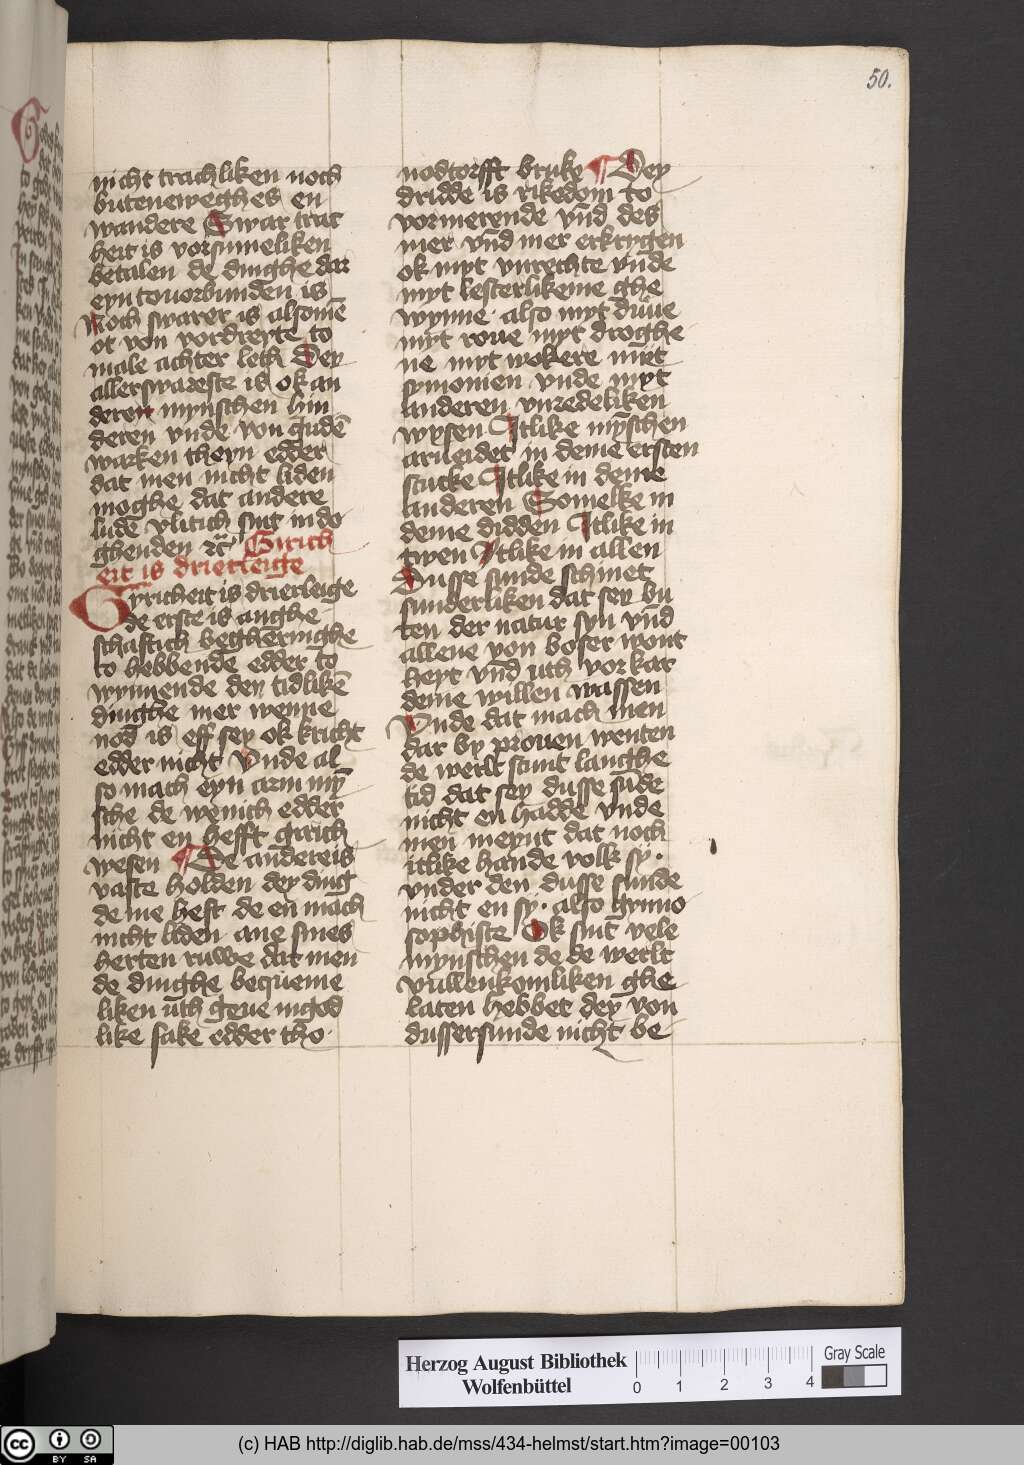 50.
nicht trachliken noch
buteneweghes en
wandere Swar trat
heit is vorsumeliken
betalen de dinghe dar
eyn to vorbunden is
Noch swarer is alsomē
ot von vordreyte to
male achter leth Dey
allerswareste is ok an
deren mynschen hin
deren vnde von gudē
warken theyn edder
dat men nicht liden
moghe dat andere
ludē vlitich sint in do
ghenden Girich
eit is drierleige
Gyricheit is drierleige
de erste is anghe
schaftich begheringhe
to hebbende edder to
wynnende dey tidlikē
dinghe mer wenne
nod is eff sey ok kricht
edder nicht Vnde al
so mach eyn arm mȳ
sche de wenich edder
nicht en hefft girich
wesen ¶ De andere is
vaste holden dey ding
de me heft de en mach
nicht liden ane sines
herten ruwe dat men
de dinghe bequeme
liken uth geue in god
like sake edder tho
nodtorfft bruke ¶ Dey
dridde is rikedom to
vormerende vn̄d des
mer vn̄d mer erkrygen
ok myt vnrechte vnde
myt lesterlikeme ghe
wynne · also myt duue
myt roue myt droghe
ne myt wokere met
symonien vnde myt
anderen vnredeliken
wysen Itlike mȳschen
arueidet in deme ersten
stucke Itlike in deme
anderen Somelke in
deme didden Itlike in
twen Itlike in allen
Dusse sunde schinet
sunderliken dat sey bu
ten der natur syn vn̄d
allene von boser wont
heyt vn̄d uth vorkar
deme willen wassen
Vnde dat mach men
dar by prouen wenten
de werlt stunt langhe
tid dat sey dusse sūde
nicht en hadde vnde
men meynt dat noch
itlike hande volk sy ·
vnder den dusse sunde
nicht en sy · also gymno
sophiste Ok sint vele
mynschen de de werlt
vullenkomliken ghe
laten hebbet dey von
dusser sunde nicht be
Herzog August Bibliothek
Wolfenbüttel
0 1 2 3 4
Gray Scale
(c) HAB http://diglib.hab.de/mss/434-helmst/start.htm?image=00103
cc BY SA